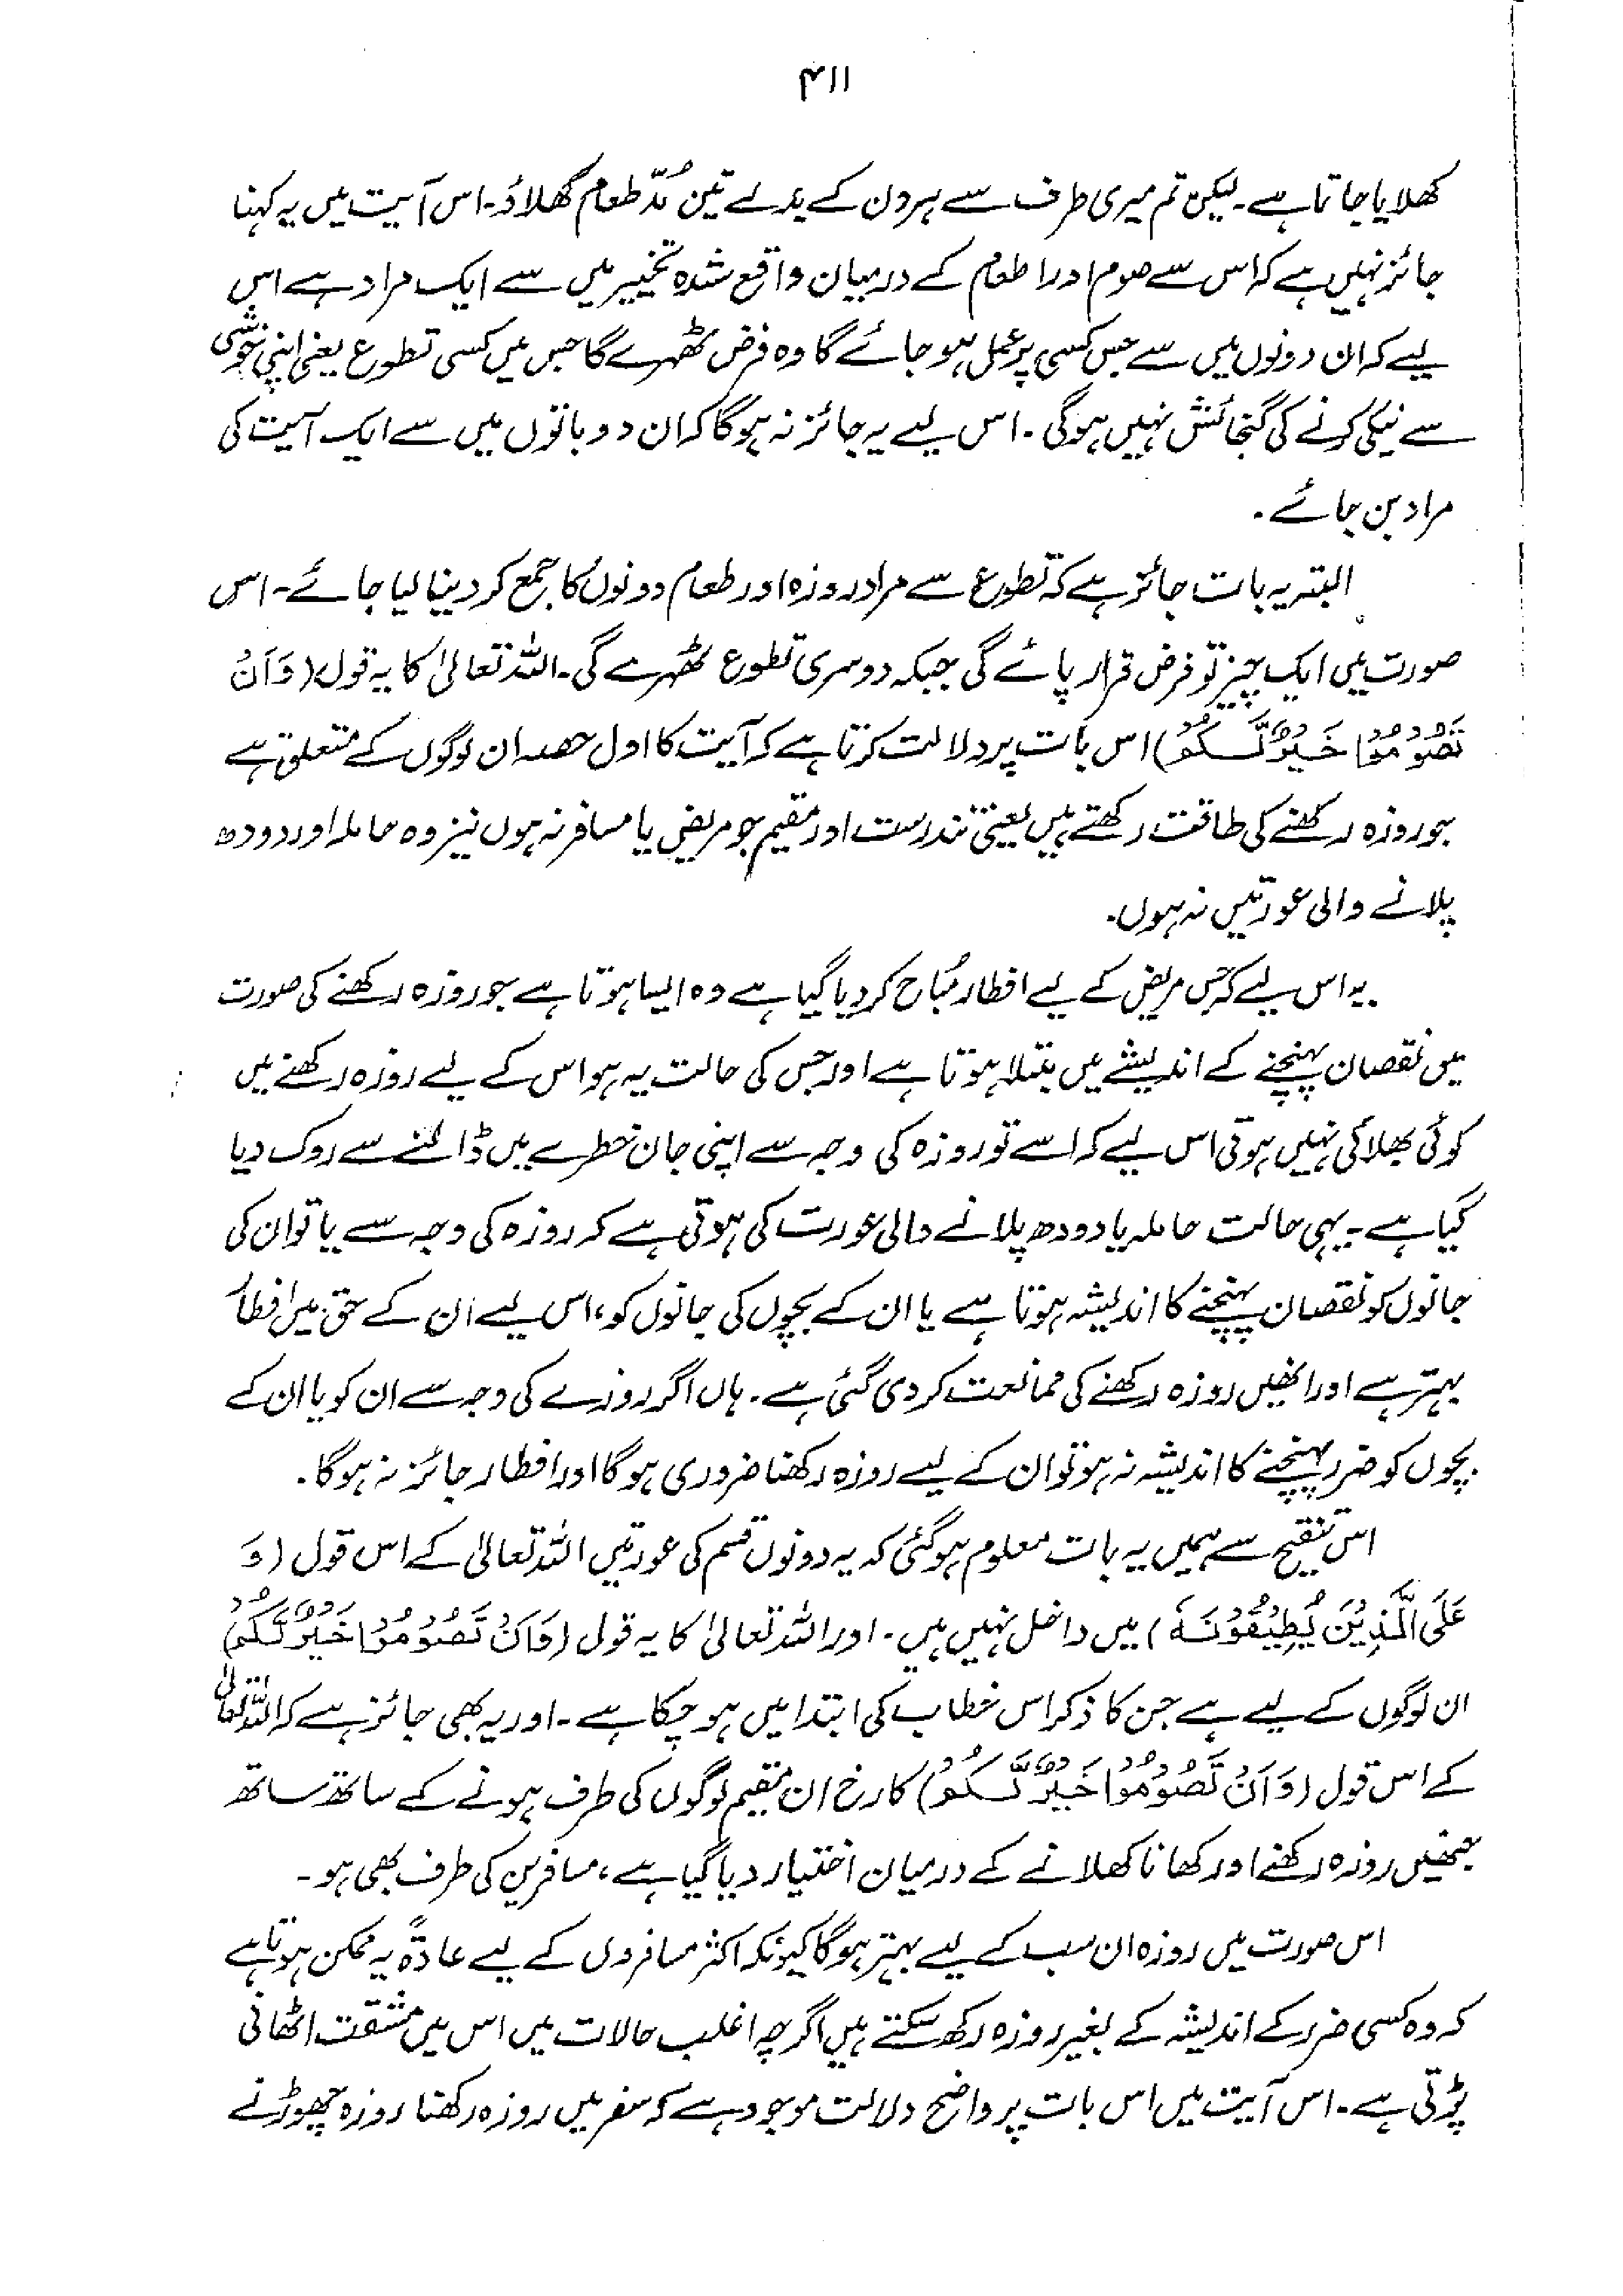 ۴۱۱
کھلایا جاتا ہے۔ لیکن تم میری طرف سے ہر دن کے بدلے تین مُدّ طعام کھلاؤ۔ اس آیت میں یہ کہنا
جائز نہیں ہے کہ اس سے صوم اور اطعام کے درمیان واقع شدہ تخییر میں سے ایک مراد ہے اس
لیے کہ ان دونوں میں سے جس کسی پر عمل ہو جائے گا وہ فرض ٹھہرے گا جس میں کسی تطوع یعنی اپنی خوشی
سے نیکی کرنے کی گنجائش نہیں ہوگی۔ اس لیے یہ جائز نہ ہوگا کہ ان دو باتوں میں سے ایک آیت کی
مراد بن جائے۔
البتہ یہ بات جائز ہے کہ تطوع سے مراد روزہ اور طعام دونوں کا جمع کر دینا لیا جائے۔ اس
صورت میں ایک چیز تو فرض قرار پائے گی جبکہ دوسری تطوع ٹھہرے گی۔ اللہ تعالیٰ کا یہ قول (وَاَنْ
تَصُوْمُوْا خَيْرٌ لَّكُمْ) اس بات پر دلالت کرتا ہے کہ آیت کا اول حصہ ان لوگوں کے متعلق ہے
جو روزہ رکھنے کی طاقت رکھتے ہیں یعنی تندرست اور مقیم جو مریض یا مسافر نہ ہوں نیز وہ حاملہ اور دودھ
پلانے والی عورتیں نہ ہوں۔
یہ اس لیے کہ جس مریض کے لیے افطار مُباح کر دیا گیا ہے وہ ایسا ہوتا ہے جو روزہ رکھنے کی صورت
میں نقصان پہنچنے کے اندیشے میں مبتلا ہوتا ہے اور جس کی حالت یہ ہو اس کے لیے روزہ رکھنے میں
کوئی بھلائی نہیں ہوتی اس لیے کہ اسے تو روزہ کی وجہ سے اپنی جان خطرے میں ڈالنے سے روک دیا
گیا ہے۔ یہی حالت حاملہ یا دودھ پلانے والی عورت کی ہوتی ہے کہ روزہ کی وجہ سے یا تو ان کی
جانوں کو نقصان پہنچنے کا اندیشہ ہوتا ہے یا ان کے بچوں کی جانوں کو، اس لیے ان کے حق میں افطار
بہتر ہے اور انھیں روزہ رکھنے کی ممانعت کر دی گئی ہے۔ ہاں اگر روزے کی وجہ سے ان کو یا ان کے
بچوں کو ضرر پہنچنے کا اندیشہ نہ ہو تو ان کے لیے روزہ رکھنا ضروری ہوگا اور افطار جائز نہ ہوگا۔
اس تنقیح سے ہمیں یہ بات معلوم ہوگئی کہ یہ دونوں قسم کی عورتیں اللہ تعالیٰ کے اس قول (وَ
عَلَى الَّذِيْنَ يُطِيْقُوْنَهٗ) میں داخل نہیں ہیں۔ اور اللہ تعالیٰ کا یہ قول (وَاَنْ تَصُوْمُوْا خَيْرٌ لَّكُمْ)
ان لوگوں کے لیے ہے جن کا ذکر اس خطاب کی ابتدا میں ہو چکا ہے۔ اور یہ بھی جائز ہے کہ اللہ تعالیٰ
کے اس قول (وَاَنْ تَصُوْمُوْا خَيْرٌ لَّكُمْ) کا رخ ان مقیم لوگوں کی طرف ہونے کے ساتھ ساتھ
جنھیں روزہ رکھنے اور کھانا کھلانے کے درمیان اختیار دیا گیا ہے، مسافرین کی طرف بھی ہو۔
اس صورت میں روزہ ان سب کے لیے بہتر ہوگا کیونکہ اکثر مسافروں کے لیے عادۃً یہ ممکن ہوتا ہے
کہ وہ کسی ضرر کے اندیشہ کے بغیر روزہ رکھ سکتے ہیں اگرچہ اغلب حالات میں اس میں مشقت اٹھانی
پڑتی ہے۔ اس آیت میں اس بات پر واضح دلالت موجود ہے کہ سفر میں روزہ رکھنا روزہ چھوڑنے